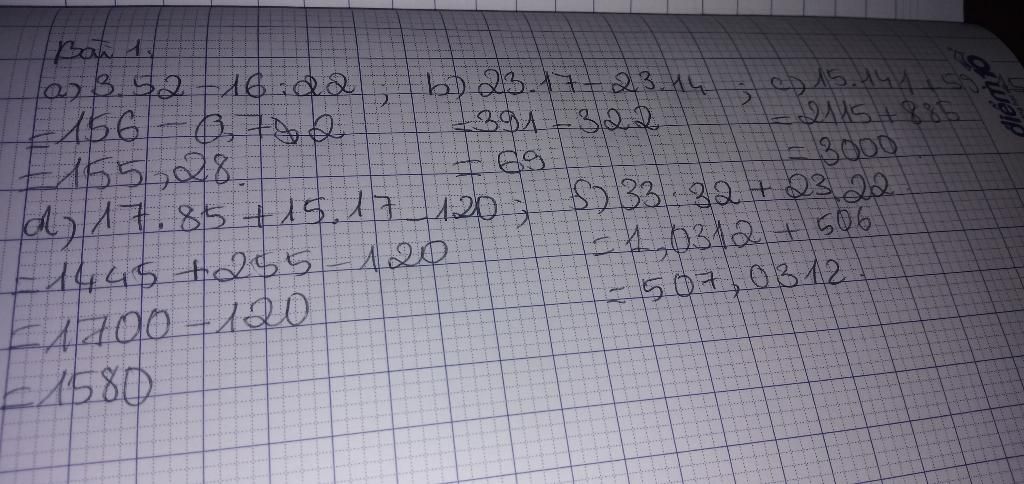 Bài 1.
a) 3.52 - 16:22 , b) 23.17 - 23.14 ; c) 15.141 + 59.15
= 156 - 0,72 = 391 - 322 = 2115 + 885
= 155,28. = 69 = 3000
d) 17.85 + 15.17 - 120 ; S) 33:32 + 23.22
= 1445 + 255 - 120 = 1,0312 + 506
= 1700 - 120 = 507,0312.
= 1580